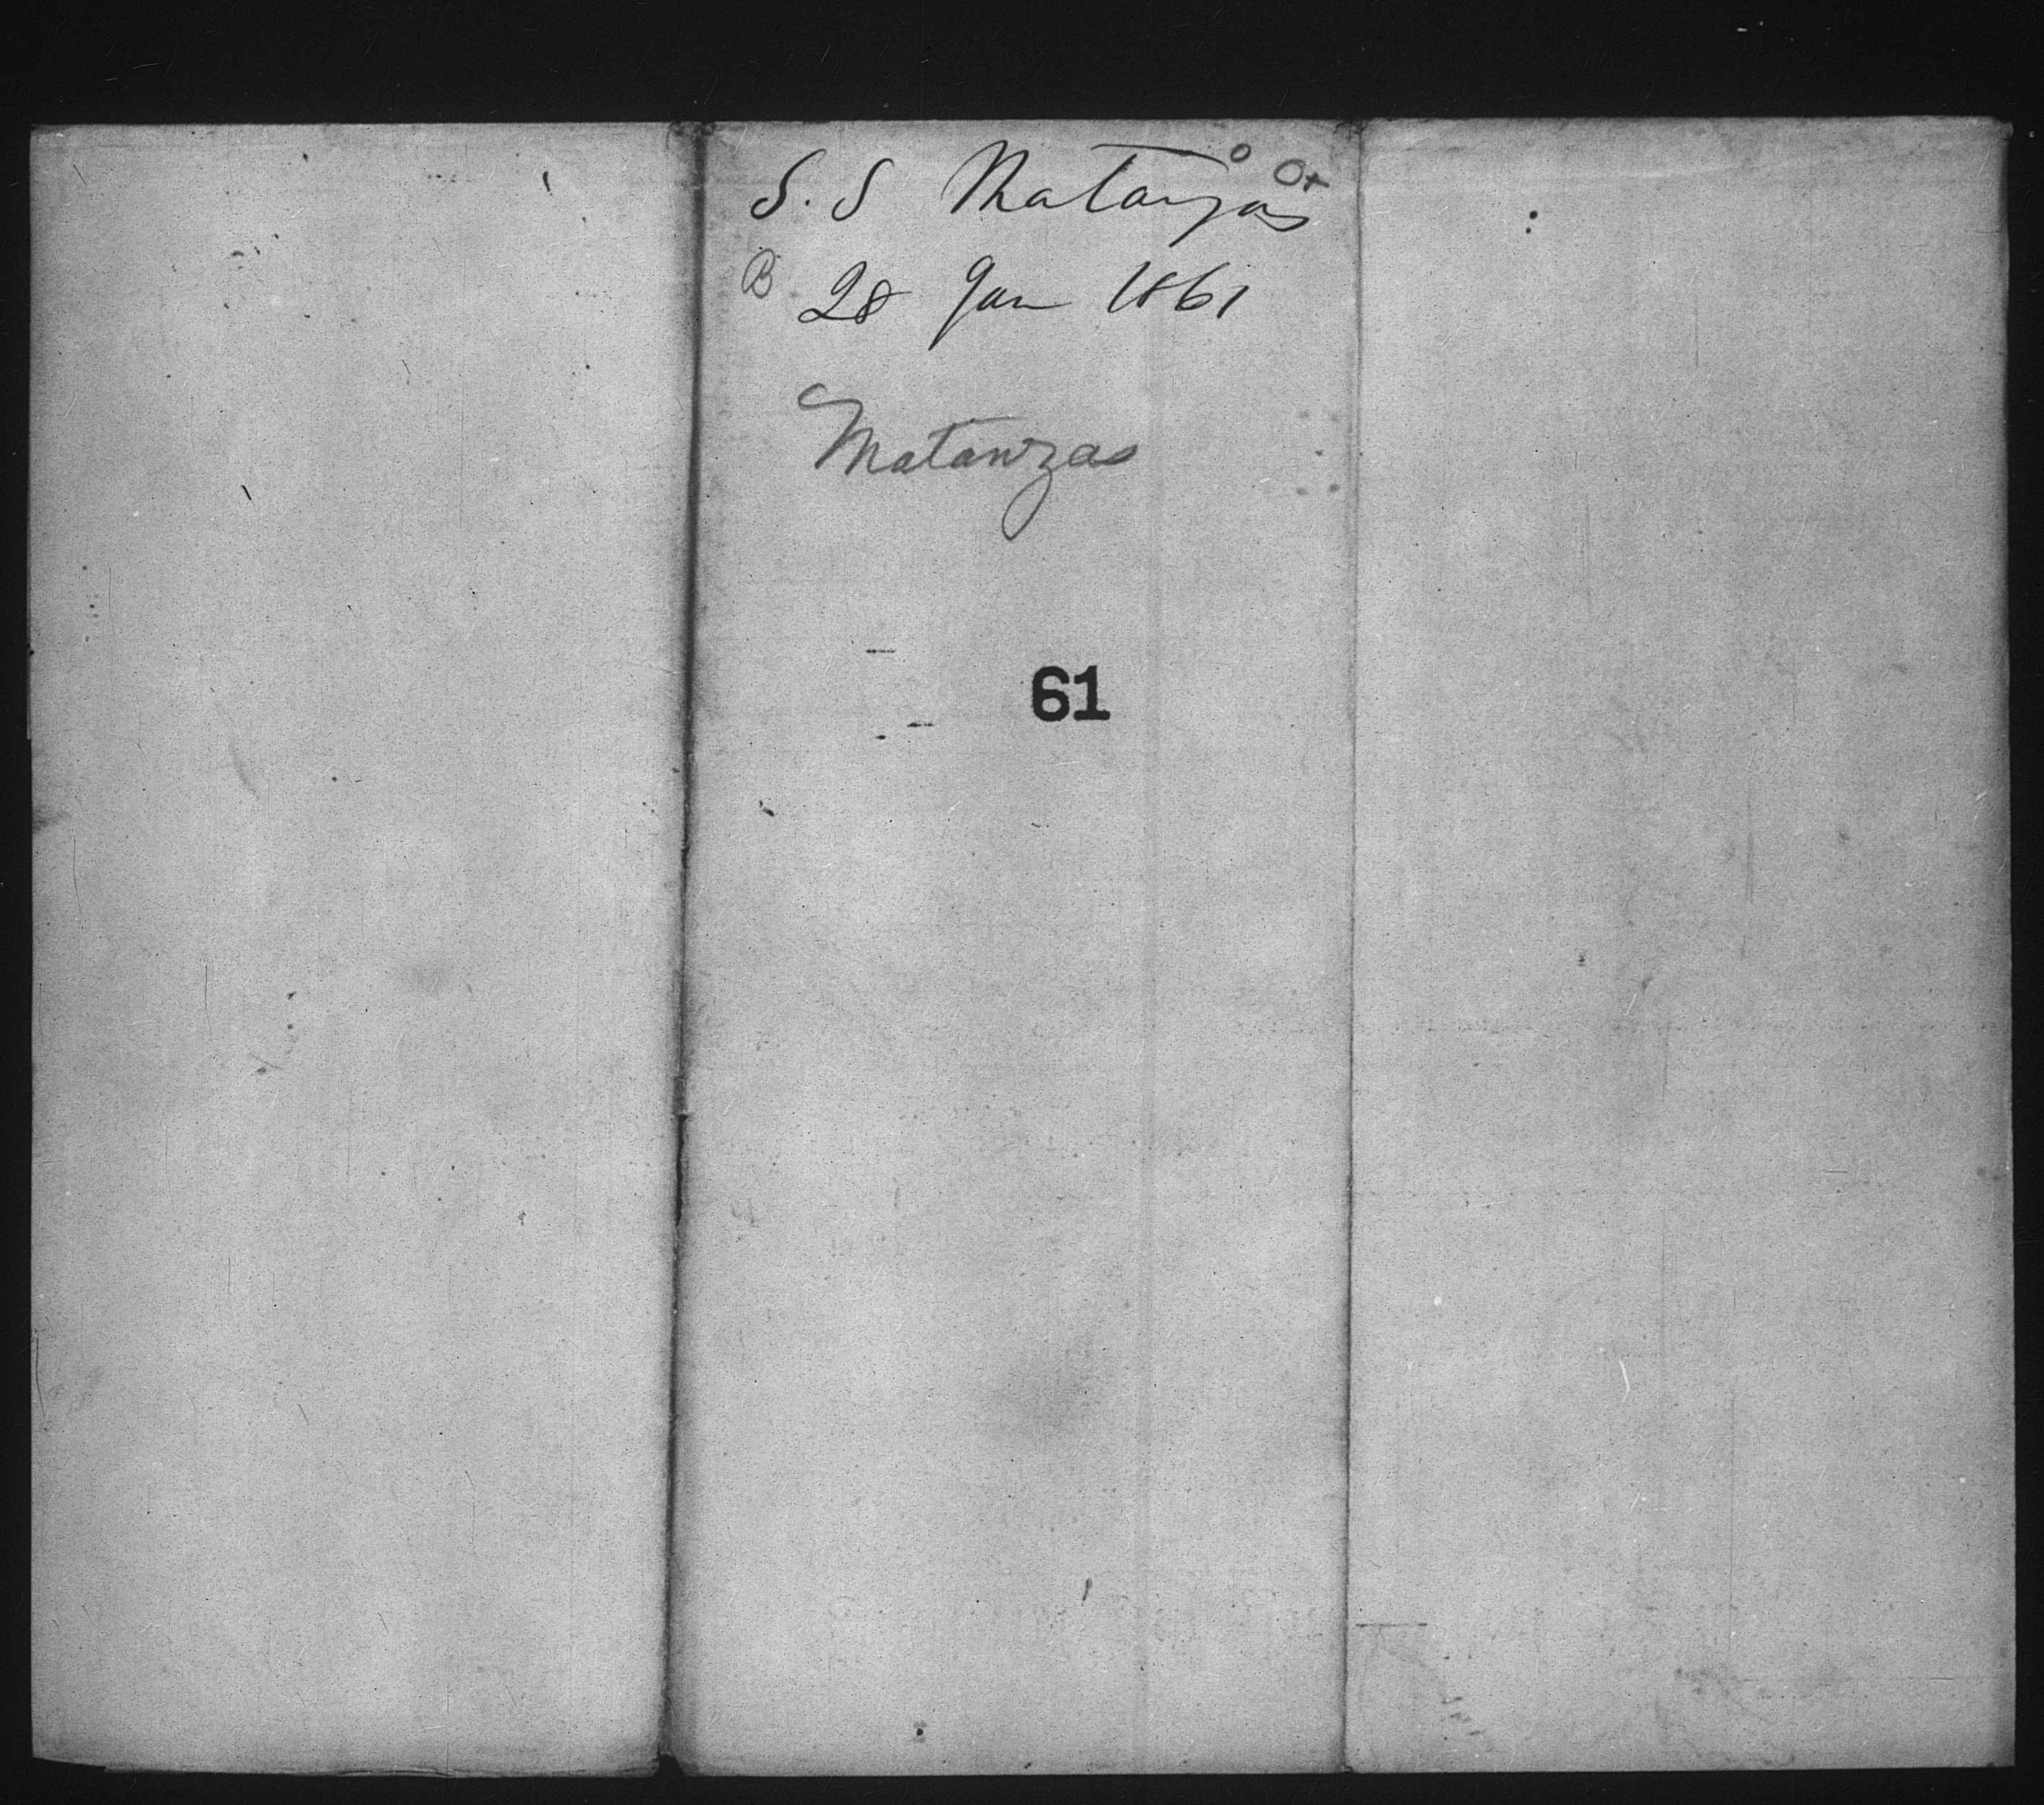 S. S Matanzas
B 28 Jan 1861
Matanzas
61